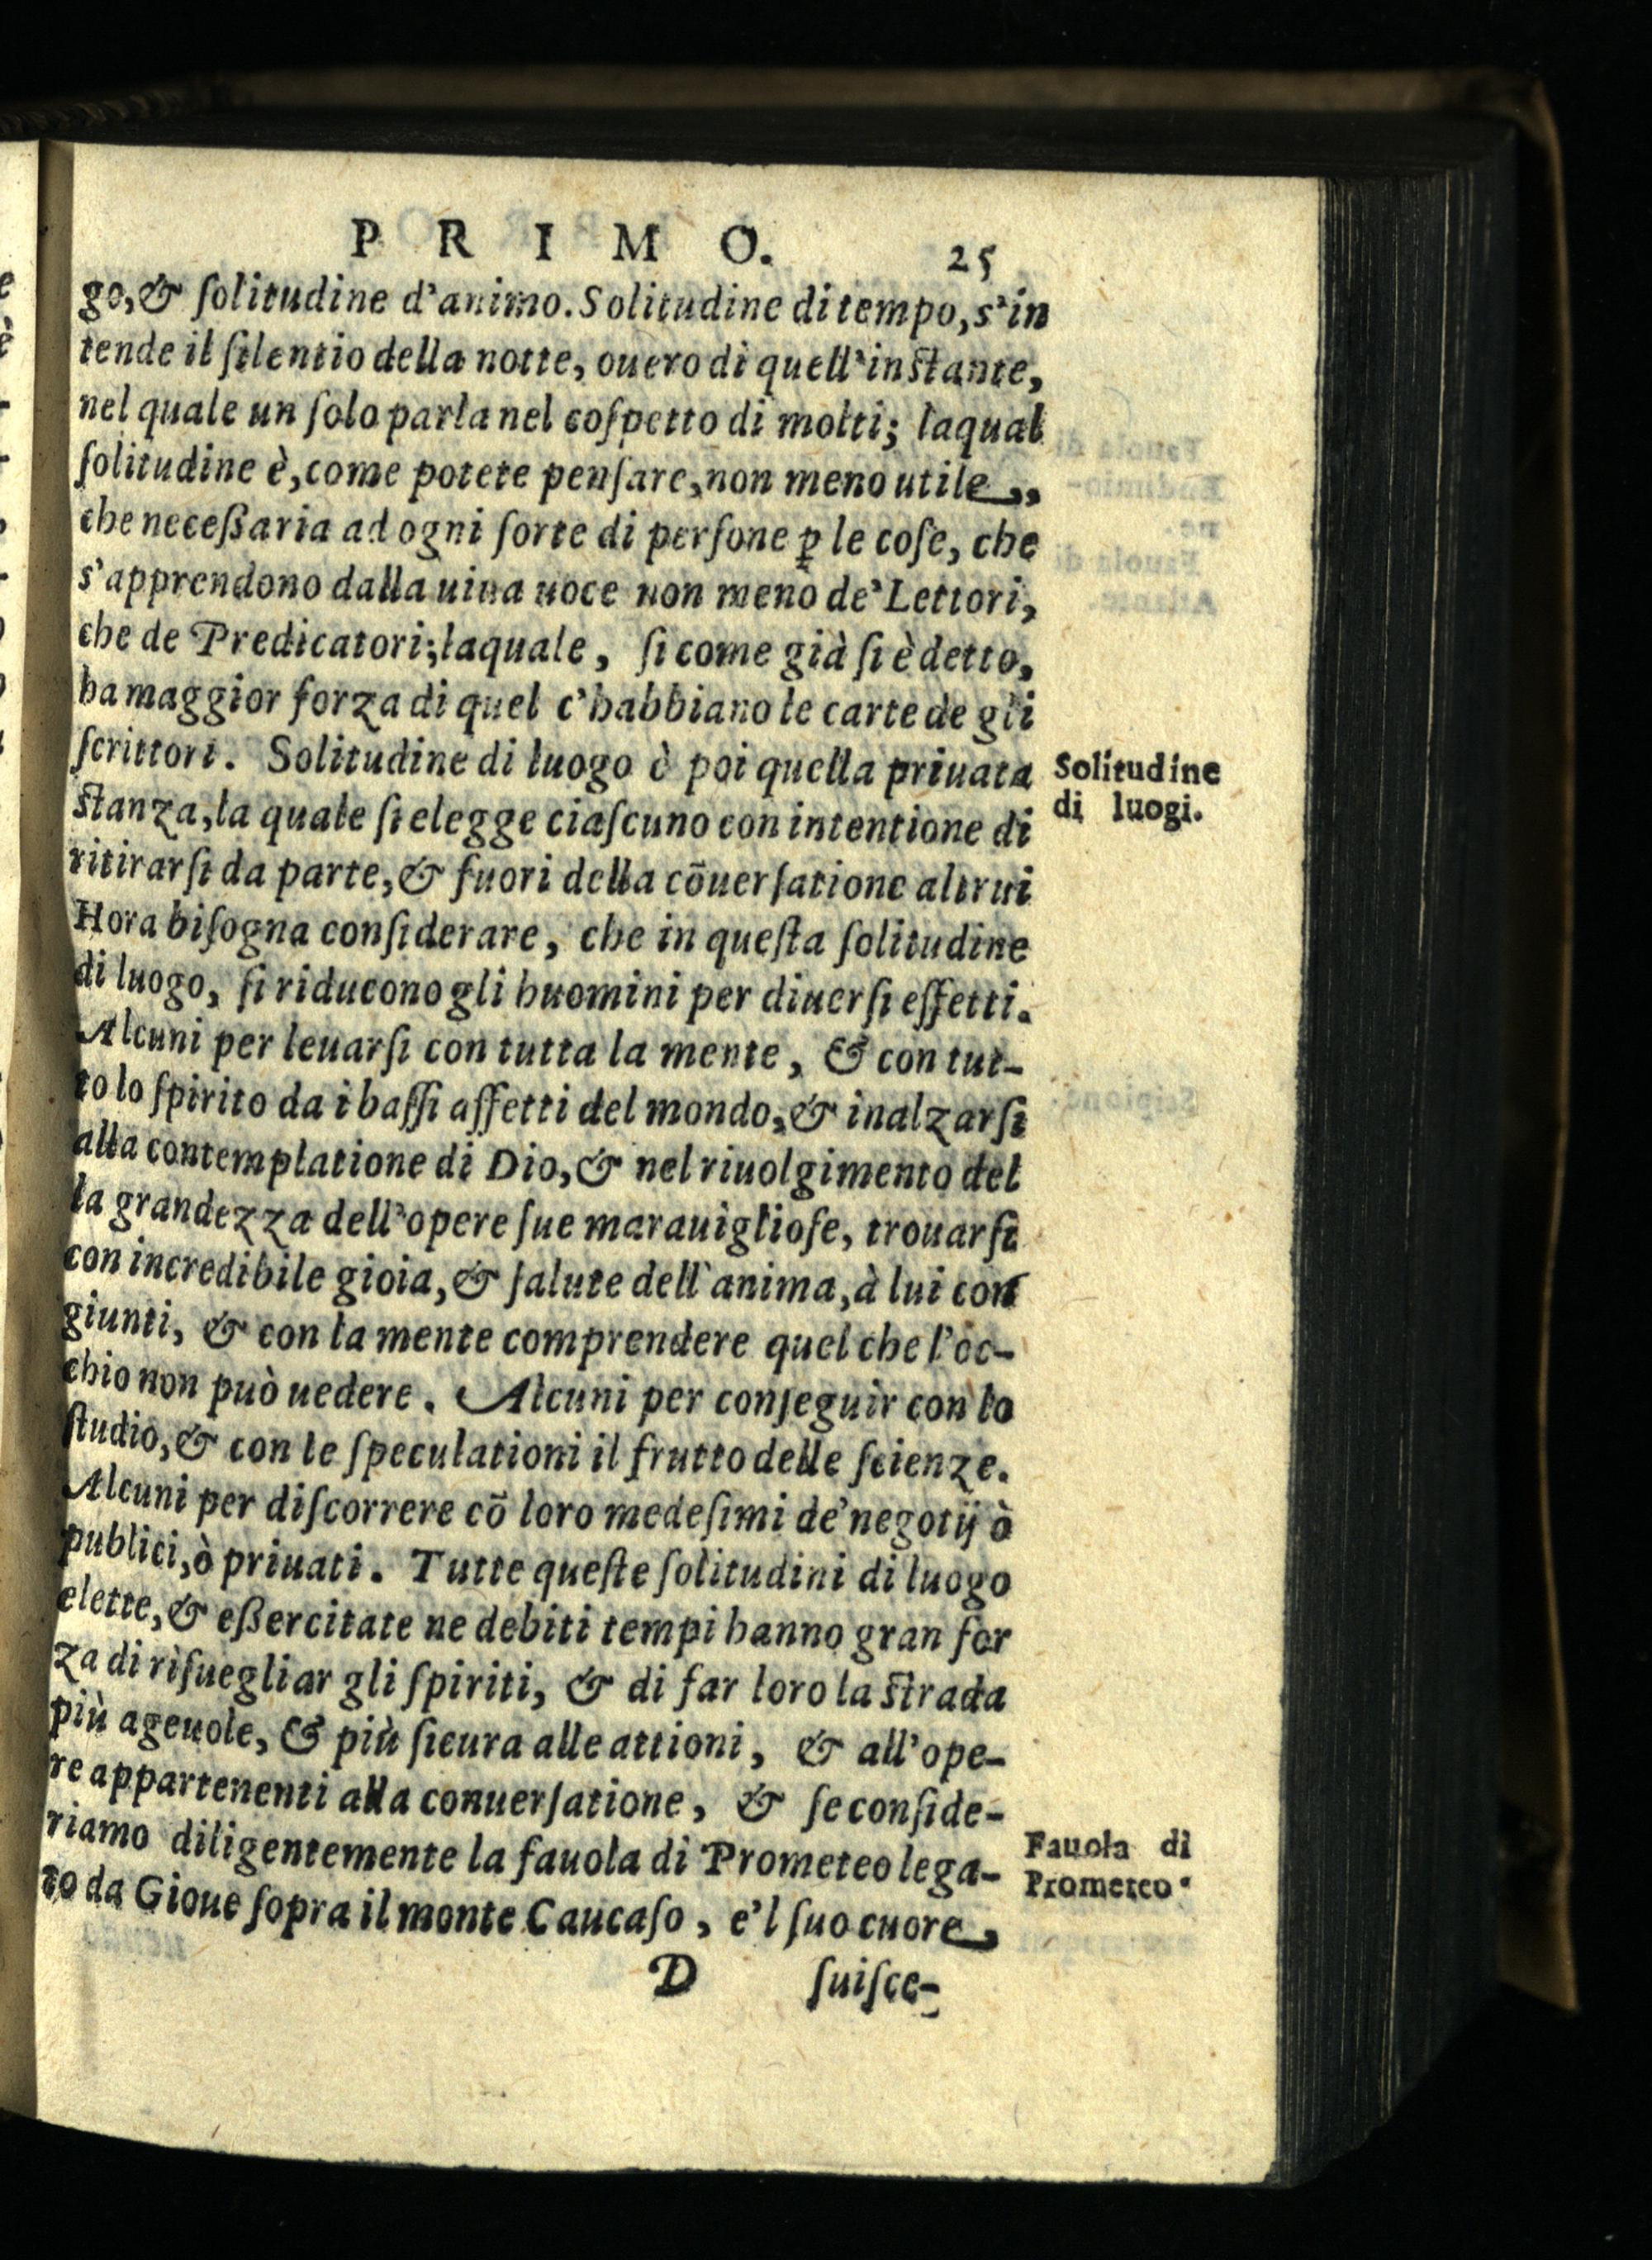 PRIMO. 25
go,& ſolitudine d'animo. Solitudine di tempo, s'in
tende il ſilentio della notte, ouero di quell'inſtante,
nel quale un ſolo parla nel coſpetto di molti; laqual
ſolitudine è, come potete penſare, non meno utile,
che neceßaria ad ogni ſorte di perſone ꝑ le coſe, che
s'apprendono dalla uiua uoce non meno de'Lettori,
che de Predicatori; laquale, ſi come già ſi è detto,
ha maggior forza di quel c'habbiano le carte de gli
ſcrittori. Solitudine di luogo è poi quella priuata
Solitudine
di luogi.
ſtanza, la quale ſi elegge ciaſcuno con intentione di
ritirarſi da parte, & fuori della cõuerſatione altrui
Hora biſogna conſiderare, che in queſta ſolitudine
di luogo, ſi riducono gli huomini per diuerſi effetti.
Alcuni per leuarſi con tutta la mente, & con tut-
to lo ſpirito da i baſſi affetti del mondo, & inalzarſi
alla contemplatione di Dio, & nel riuolgimento del
la grandezza dell'opere ſue marauiglioſe, trouarſi
con incredibile gioia, & ſalute dell'anima, à lui con
giunti, & con la mente comprendere quel che l'oc-
chio non può uedere. Alcuni per conſeguir con lo
ſtudio, & con le ſpeculationi il frutto delle ſcienze.
Alcuni per diſcorrere cõ loro medeſimi de'negotij ò
publici, ò priuati. Tutte queſte ſolitudini di luogo
elette, & eßercitate ne debiti tempi hanno gran for
za di riſuegliar gli ſpiriti, & di far loro la ſtrada
più ageuole, & più ſicura alle attioni, & all'ope-
re appartenenti alla conuerſatione, & ſe conſide-
riamo diligentemente la fauola di Prometeo lega-
Fauola di
Prometeo.
to da Gioue ſopra il monte Caucaſo, e'l ſuo cuore,
D ſuiſce-